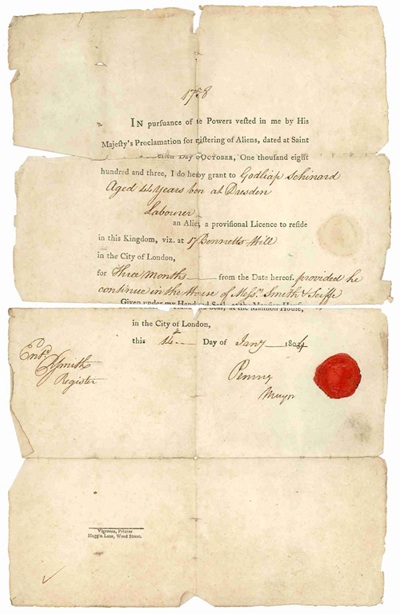 1758
IN pursuance of e Powers vested in me by His
Majesty's Proclamation for egistering of Aliens, dated at Saint
Day of OCTOBER, One thousand eight
hundred and three, I do hereby grant to Godleap Schinard
Aged 44 years born at Dresden
Labourer
an Alien, a provisional Licence to reside
in this Kingdom, viz. at 17 Bennetts Hill
in the City of London,
for Three Months from the Date hereof. provided he
continue in the House of Messrs Smith &
Given under my Hand and Seal, at the Mansion House,
in the City of London,
this 14 Day of Jany 1804
Entd
Smith
Register
Perring
Mayor
Printer
Huggin Lane, Wood Street.